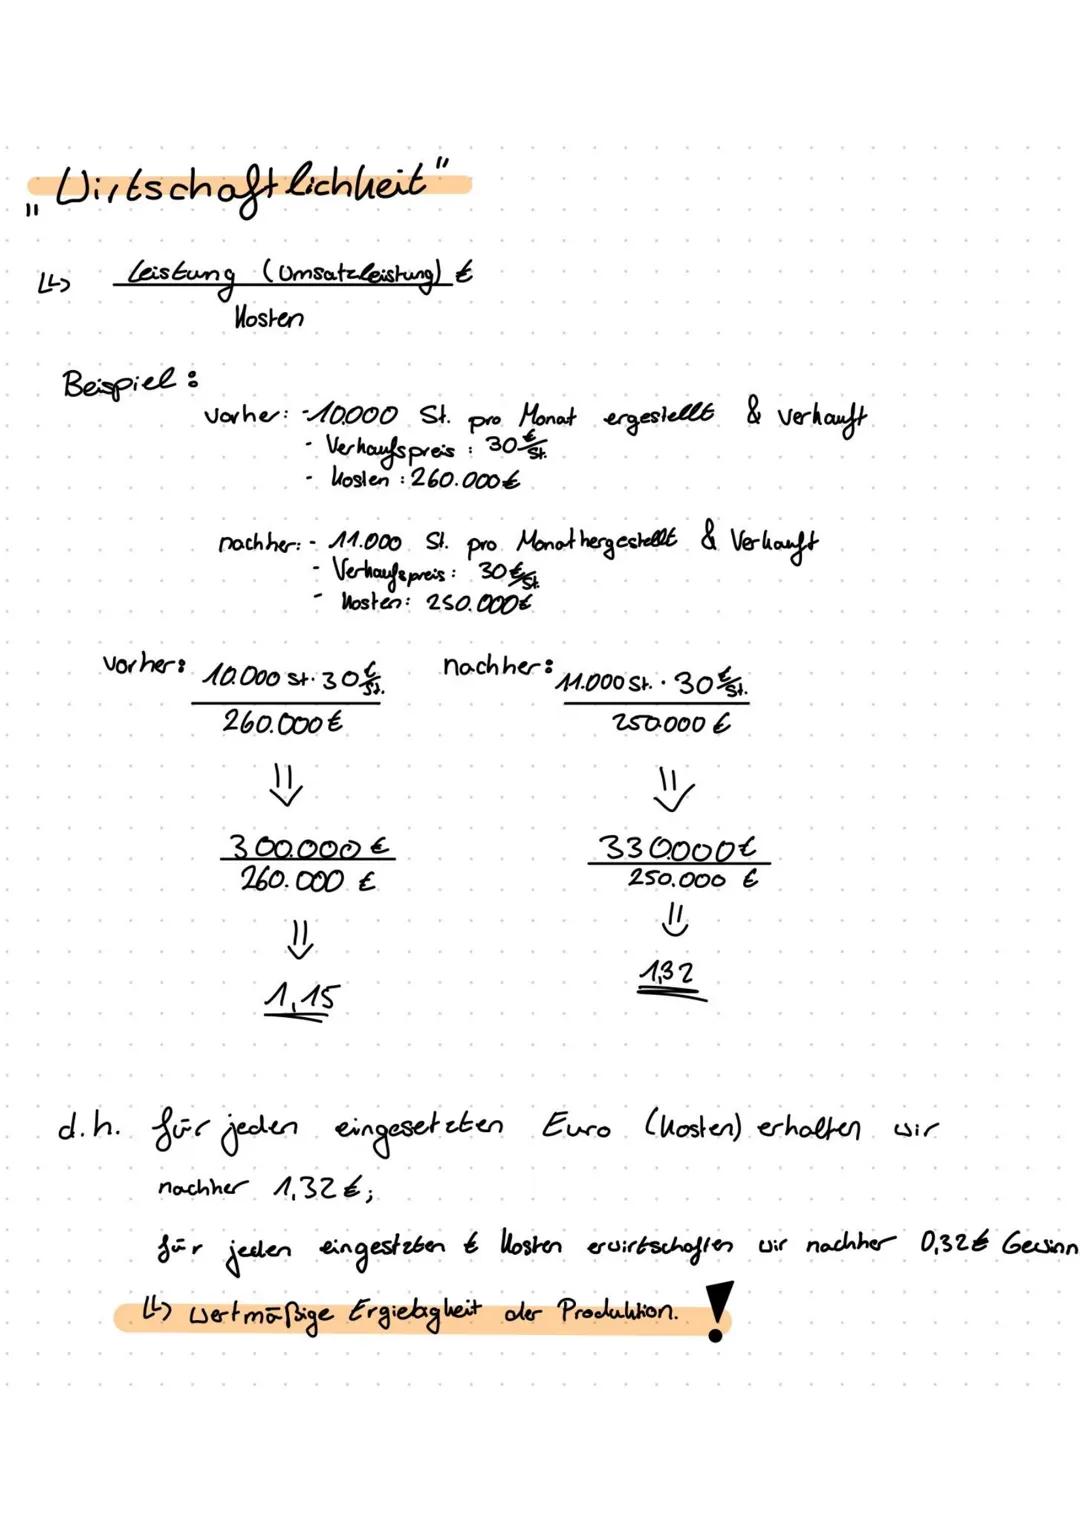 „Wirtschaftlichkeit"
↳ Leistung (Umsatzleistung) €
Kosten
Beispiel:
vorher: - 10.000 St. pro Monat ergestellt & verkauft
- Verkaufspreis: 30 €/St.
- Kosten: 260.000 €
nachher: - 11.000 St. pro Monat hergestellt & Verkauft
- Verkaufspreis: 30 €/St.
- Kosten: 250.000 €
vorher: 10.000 St. · 30 €/St. nachher: 11.000 St. · 30 €/St.
260.000 € 250.000 €
⇓ ⇓
300.000 € 330.000 €
260.000 € 250.000 €
⇓ ⇓
1,15 1,32
d.h. für jeden eingesetzten Euro (Kosten) erhalten wir
nachher 1,32 €;
für jeden eingestzten € Kosten erwirtschaften wir nachher 0,32 € Gewinn
↳ wertmäßige Ergiebigkeit der Produktion. !